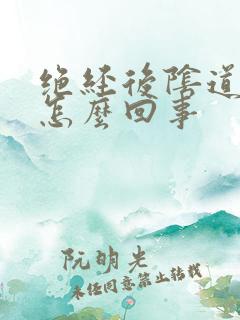 绝经後陰道
怎麼回事
阮明先
未经同意禁止转载